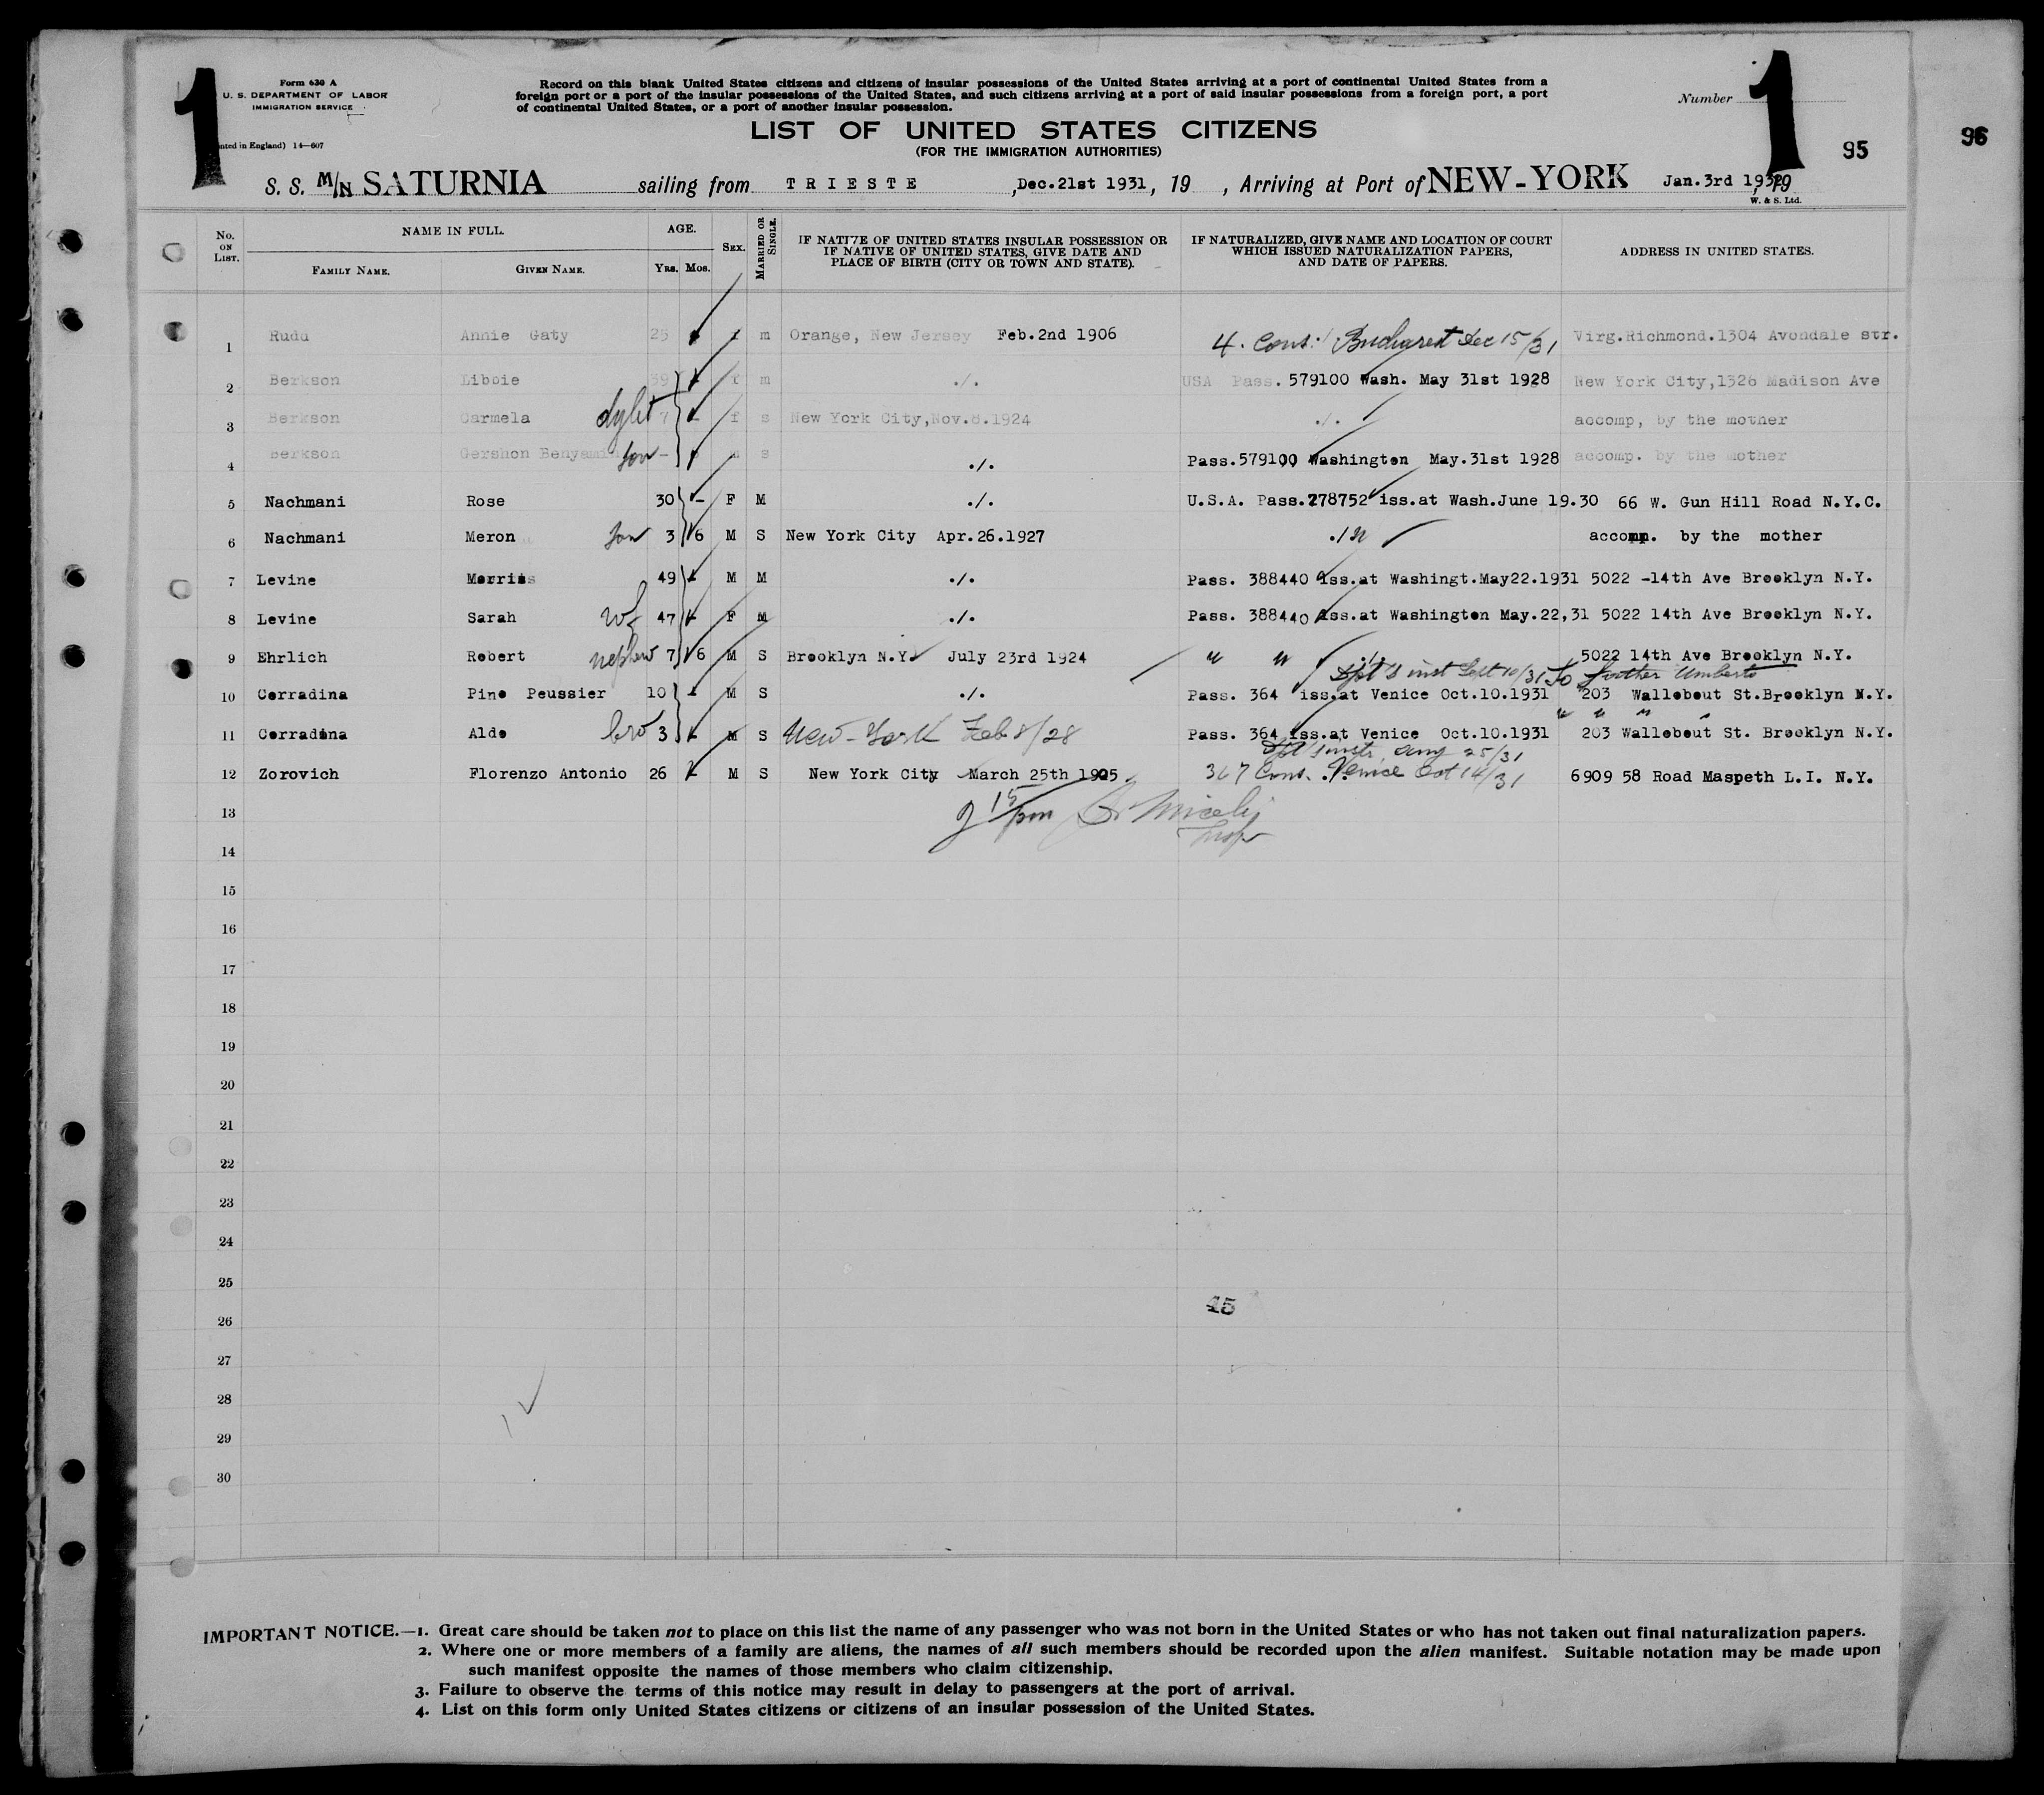 1
Form 630 A
U. S. DEPARTMENT OF LABOR
IMMIGRATION SERVICE
nted in England) 14—607
Record on this blank United States citizens and citizens of insular possessions of the United States arriving at a port of continental United States from a
foreign port or a port of the insular possessions of the United States, and such citizens arriving at a port of said insular possessions from a foreign port, a port
of continental United States, or a port of another insular possession.
LIST OF UNITED STATES CITIZENS
(FOR THE IMMIGRATION AUTHORITIES)
Number
1
95
96
S. S. M/N SATURNIA sailing from TRIESTE , Dec.21st 1931, 19 , Arriving at Port of NEW-YORK Jan.3rd 1932, 19
W. & S. Ltd.
No. ON LIST.
NAME IN FULL.
FAMILY NAME. GIVEN NAME.
AGE.
Yrs. Mos.
SEX.
MARRIED OR SINGLE.
IF NATIVE OF UNITED STATES INSULAR POSSESSION OR
IF NATIVE OF UNITED STATES, GIVE DATE AND
PLACE OF BIRTH (CITY OR TOWN AND STATE).
IF NATURALIZED, GIVE NAME AND LOCATION OF COURT
WHICH ISSUED NATURALIZATION PAPERS,
AND DATE OF PAPERS.
ADDRESS IN UNITED STATES.
1 Rudd Annie Gaty 25 f m Orange, New Jersey Feb.2nd 1906 4. Cons: Bucharest Dec 15/31 Virg.Richmond.1304 Avondale str.
2 Berkson Libbie 39 f m ./. USA Pass. 579100 Wash. May 31st 1928 New York City,1326 Madison Ave
3 Berkson Carmela 7 - f s New York City,Nov.8.1924 ./. accomp, by the mother
4 Berkson Gershon Benyamin son - s ./. Pass.579100 Washington May.31st 1928 accomp. by the mother
5 Nachmani Rose 30 - F M ./. U.S.A. Pass.278752 iss.at Wash.June 19.30 66 W. Gun Hill Road N.Y.C.
6 Nachmani Meron son 3 6 M S New York City Apr.26.1927 ./. accomp. by the mother
7 Levine Morris 49 - M M ./. Pass. 388440 iss.at Washingt.May22.1931 5022 -14th Ave Brooklyn N.Y.
8 Levine Sarah wf 47 - F M ./. Pass. 388440 iss.at Washington May.22,31 5022 14th Ave Brooklyn N.Y.
9 Ehrlich Robert nephew 7 6 M S Brooklyn N.Y. July 23rd 1924 " " ./. 5022 14th Ave Brooklyn N.Y.
Sept 10/31 To father Umberto
10 Corradina Pino Peussier 10 - M S ./. Pass. 364 iss.at Venice Oct.10.1931 203 Wallebout St.Brooklyn N.Y.
" " " "
11 Corradina Aldo bro 3 - M S New-York Feb 8/28 Pass. 364 iss.at Venice Oct.10.1931 203 Wallebout St. Brooklyn N.Y.
Aug 25/31
12 Zorovich Florenzo Antonio 26 - M S New York City March 25th 1905 367 Cons. Venice Oct 14/31 6909 58 Road Maspeth L.I. N.Y.
13
14
15
16
17
18
19
20
21
22
23
24
25
26
27
28
29
30
45
IMPORTANT NOTICE.—1. Great care should be taken not to place on this list the name of any passenger who was not born in the United States or who has not taken out final naturalization papers.
2. Where one or more members of a family are aliens, the names of all such members should be recorded upon the alien manifest. Suitable notation may be made upon
such manifest opposite the names of those members who claim citizenship.
3. Failure to observe the terms of this notice may result in delay to passengers at the port of arrival.
4. List on this form only United States citizens or citizens of an insular possession of the United States.